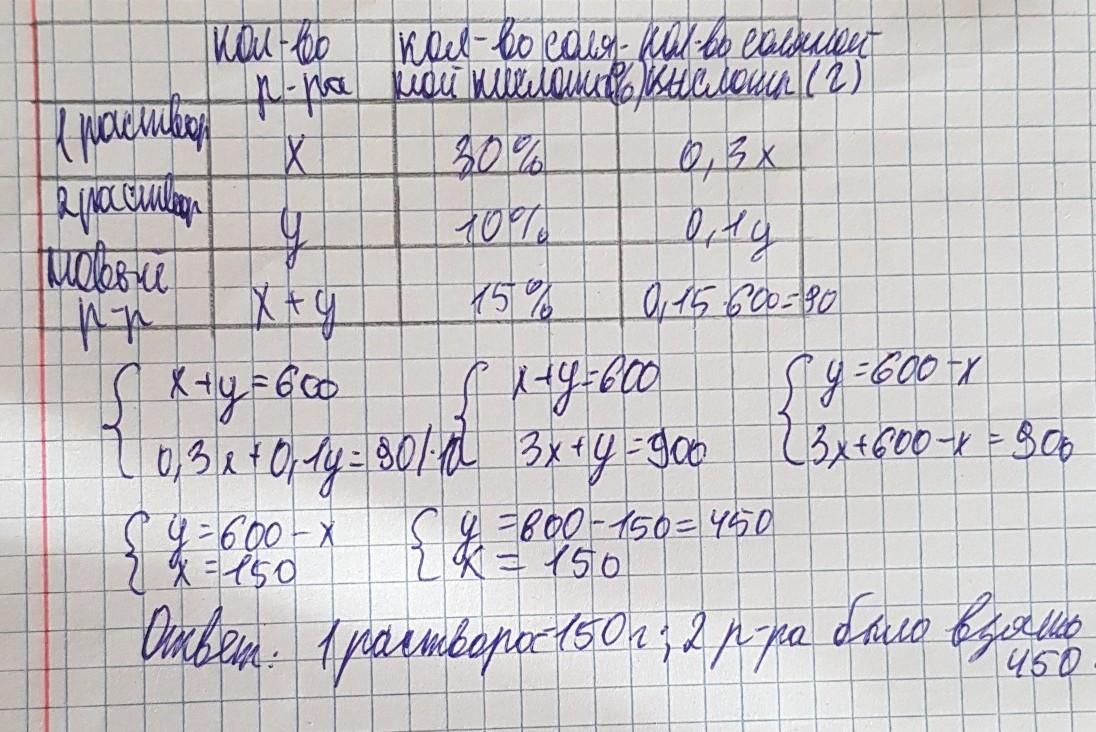 кол-во р-ра кол-во соляной кислоты (%) кол-во соляной кислоты (г)
1 раствор x 30% 0,3x
2 раствор y 10% 0,1y
новый р-р x+y 15% 0,15·600=90
x+y=600 x+y=600 y=600-x
0,3x+0,1y=90/·10 3x+y=900 3x+600-x=900
y=600-x y=600-150=450
x=150 x=150
Ответ: 1 раствора-150г; 2 р-ра было взято
450